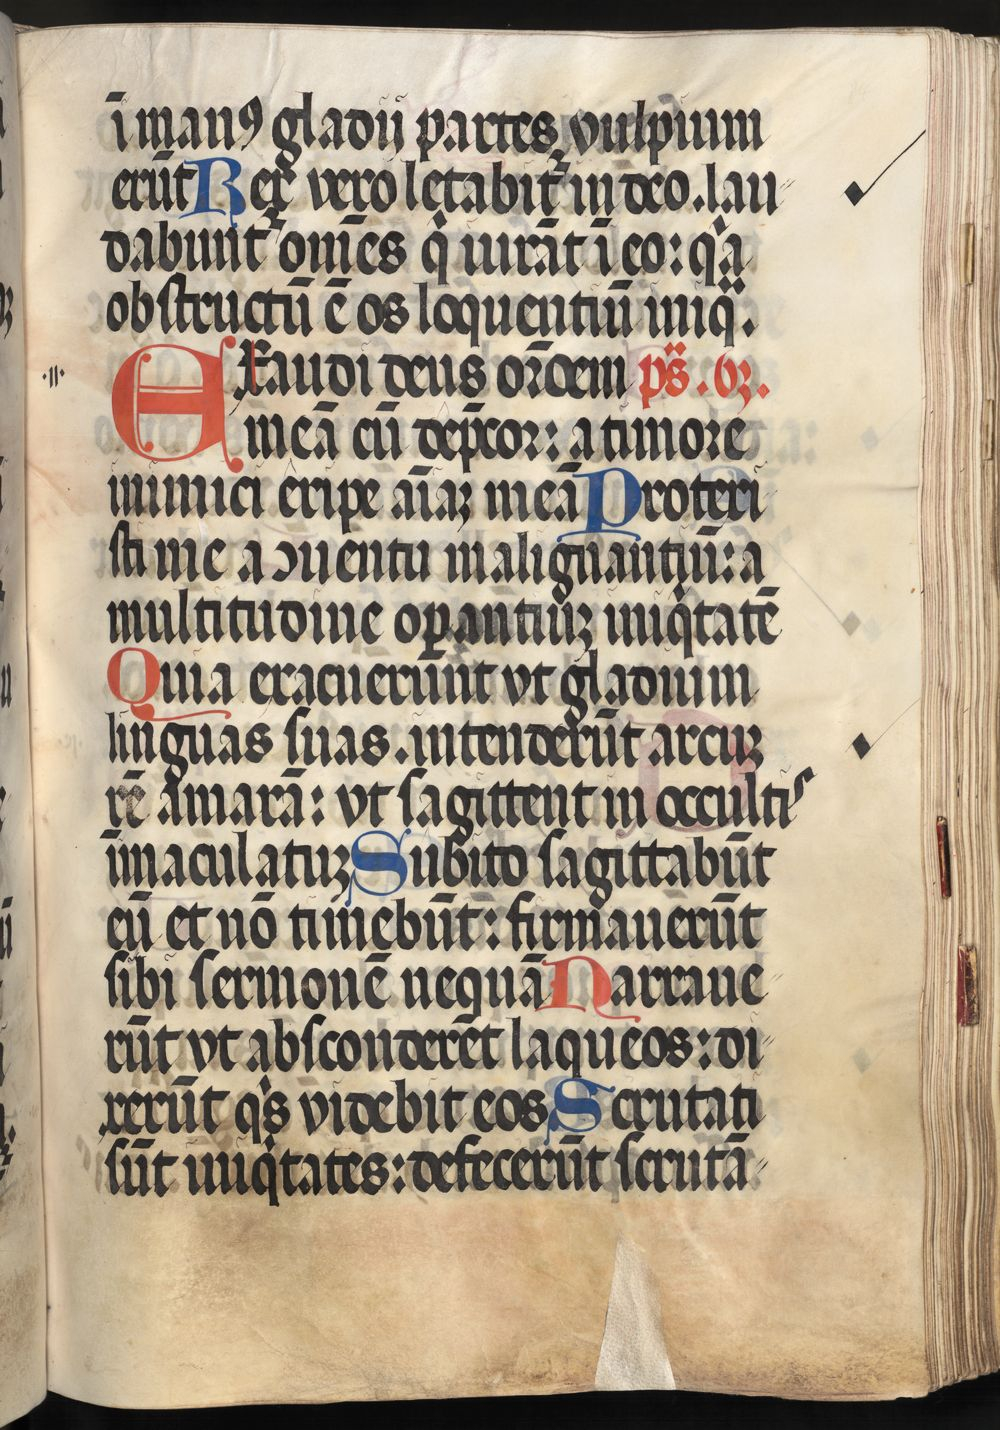 ī manꝰ gladij partes vulpium
erūt Rex vero letabit᷑ in deo. lau
dabunt᷑ om̄es q̇ iurāt ī eo: qꝛa
obstructū ē os loquentiū iniq̃.
Exaudi deus or̄oem ps̄. 63.
·II· meā cū dep̄cor: a timore
inimici eripe aīaꝫ meā Proteri
sti me a ↄuentu malignantiū: a
multitudine oꝑantiūꝫ iniq̇tatē
Quia exacuerūnt vt gladium
linguas suas. intenderūt arcuꝫ
rē amarā: vt sagittent in occultis
īmaculatuꝫ Subito sagittabūt
eū et nō timebūt: firmauerūt
sibi sermonē nequā Narraue
rūt vt absconderēt laqueos: di
xerūt q̇s videbit eos Scrutati
sūt iniq̇tates: defecerūt scrutā